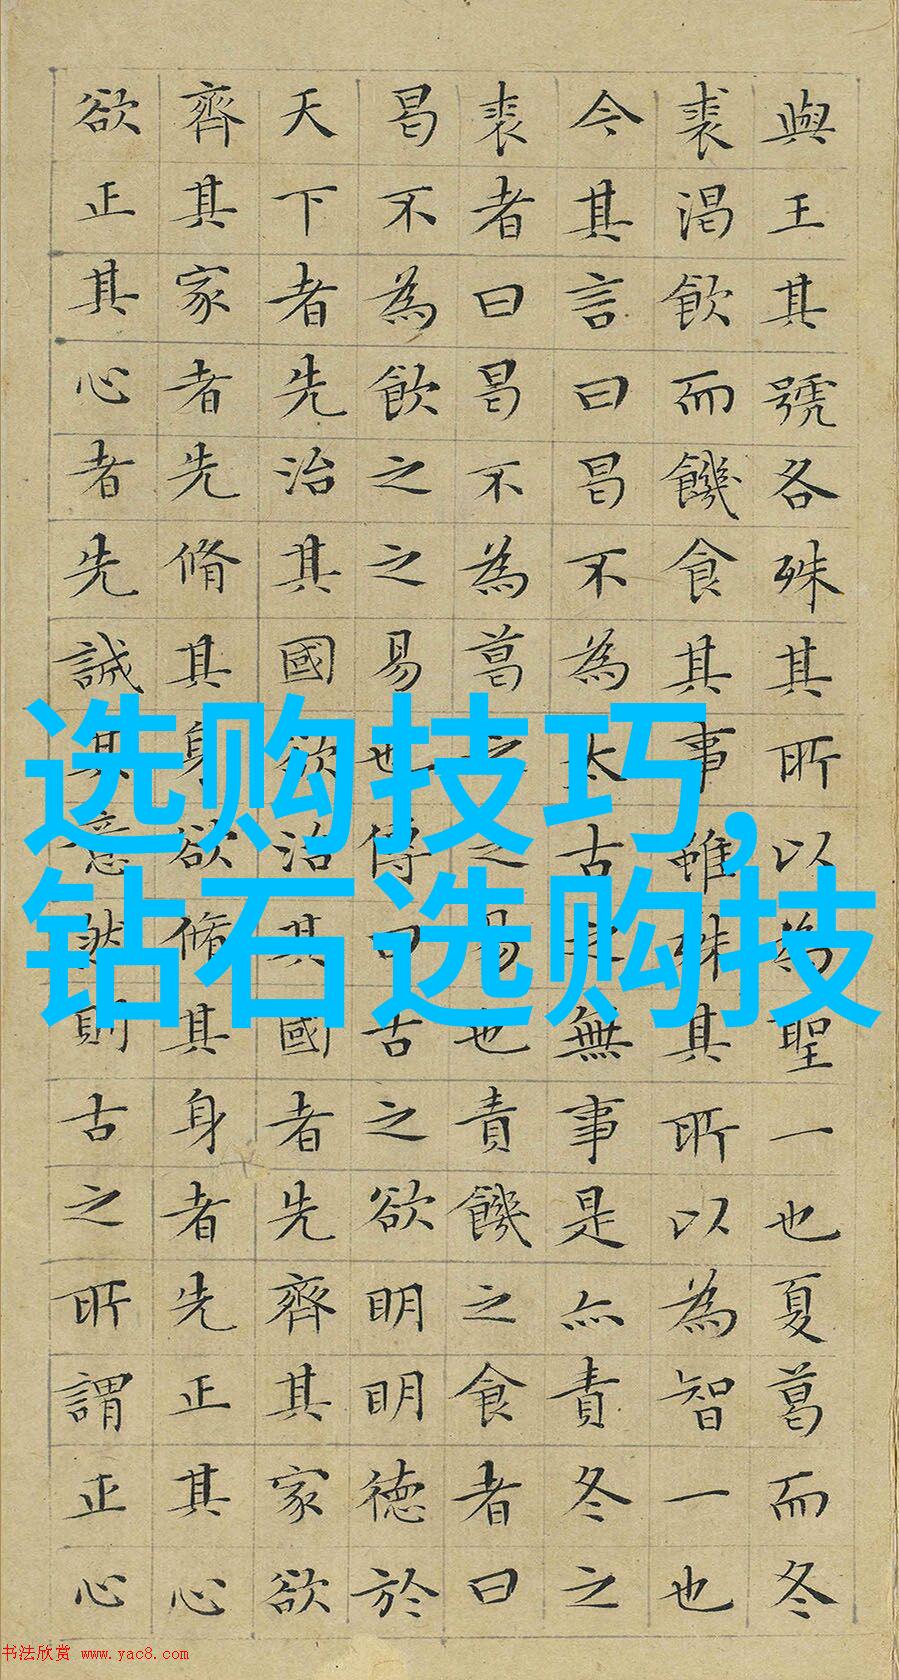 與王其號各殊其所以為聖一也夏葛而冬
裘渴飲而饑食其事雖殊其所以為智一也
今其言曰曷不為太古之無事是亦責冬之
裘者曰曷不為葛之之易也責饑之食者曰
曷不為飲之之易也傳曰古之欲明明德於
天下者先治其國欲治其國者先齊其家欲
齊其家者先脩其身欲脩其身者先正其心
欲正其心者先誠其意然則古之所謂正心
选购技巧,
钻石选购技
书法欣赏 www.yac8.com